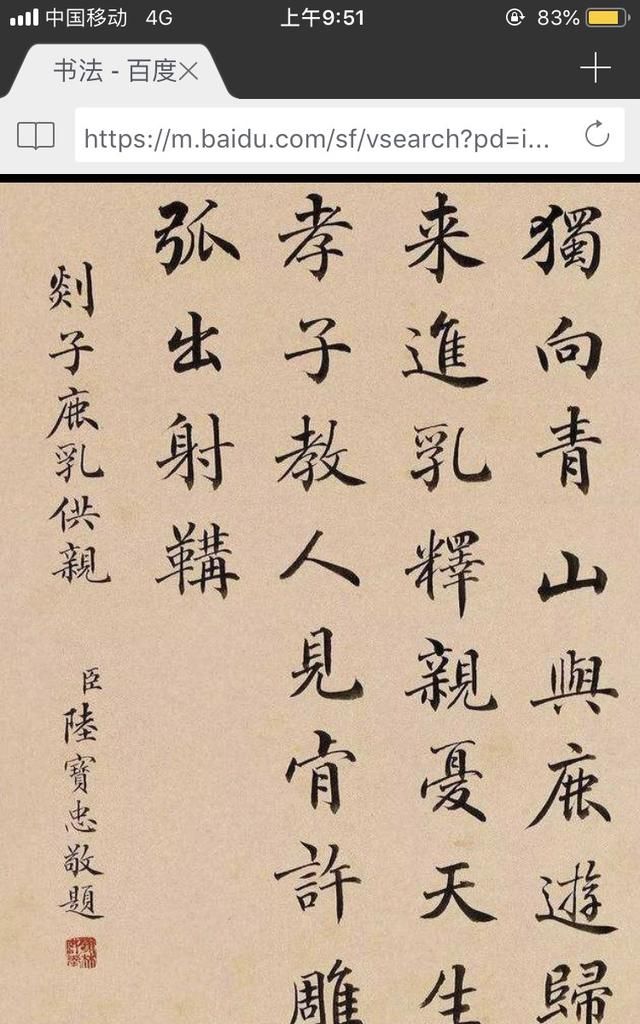 中国移动 4G 上午9:51 83%
书法 - 百度
https://m.baidu.com/sf/vsearch?pd=i...
獨向青山與鹿遊歸
来進乳釋親憂天生
孝子教人見肯許雕
弧出射鞲
剡子鹿乳供親
臣陸寶忠敬題